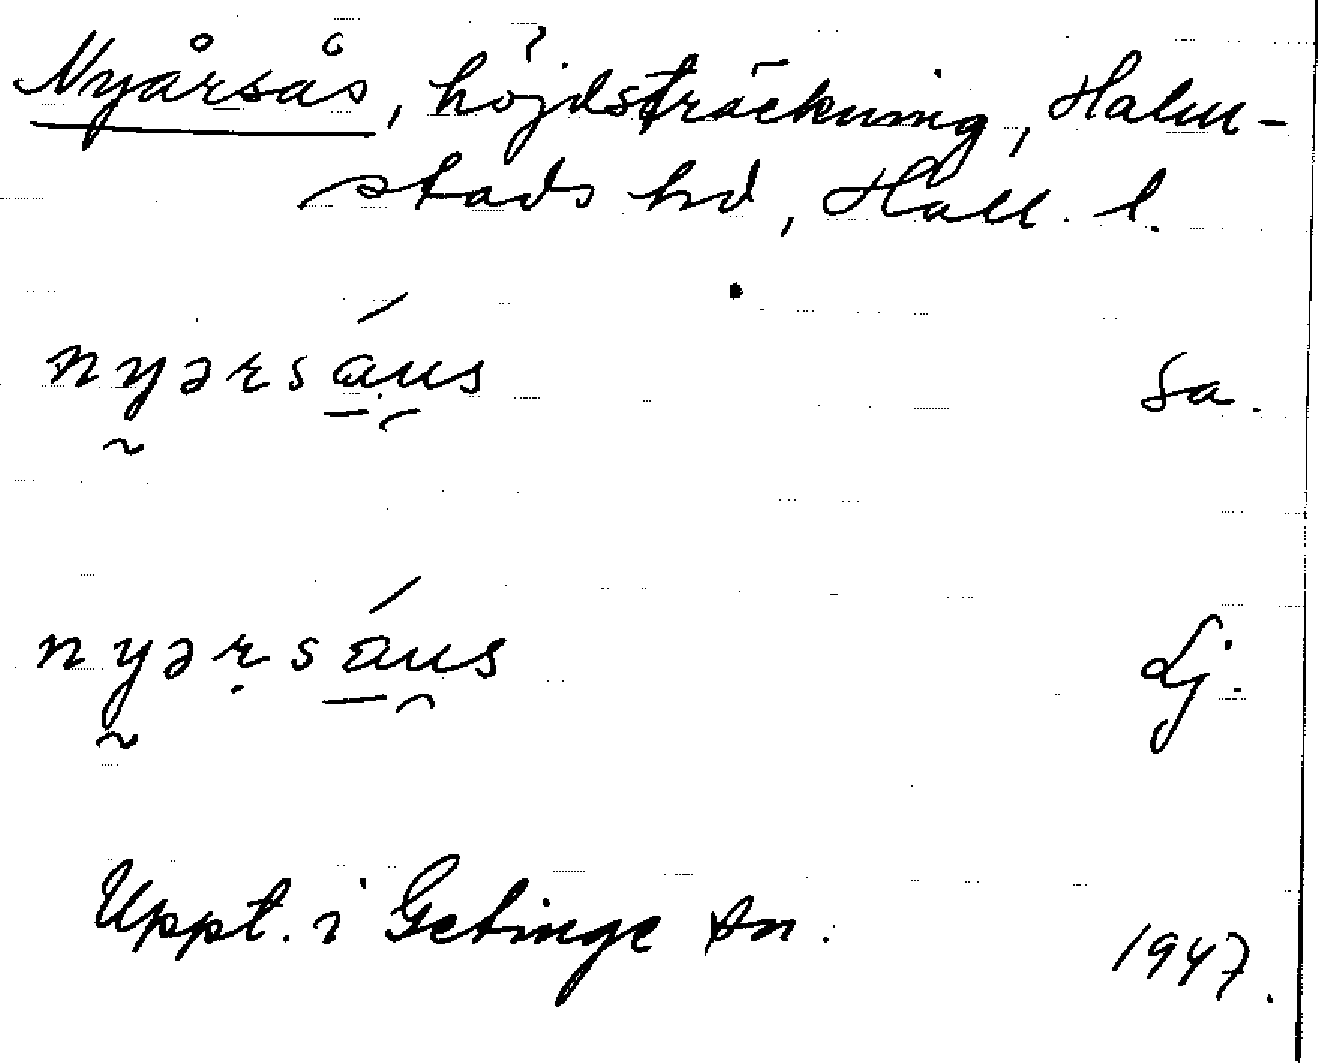 Nyårsås, höjdsträckning, Halm-
stads hd, Hall. l.
nyərsáus Sa.
nyərsáus Lj.
Uppt. i Getinge sn. 1947.